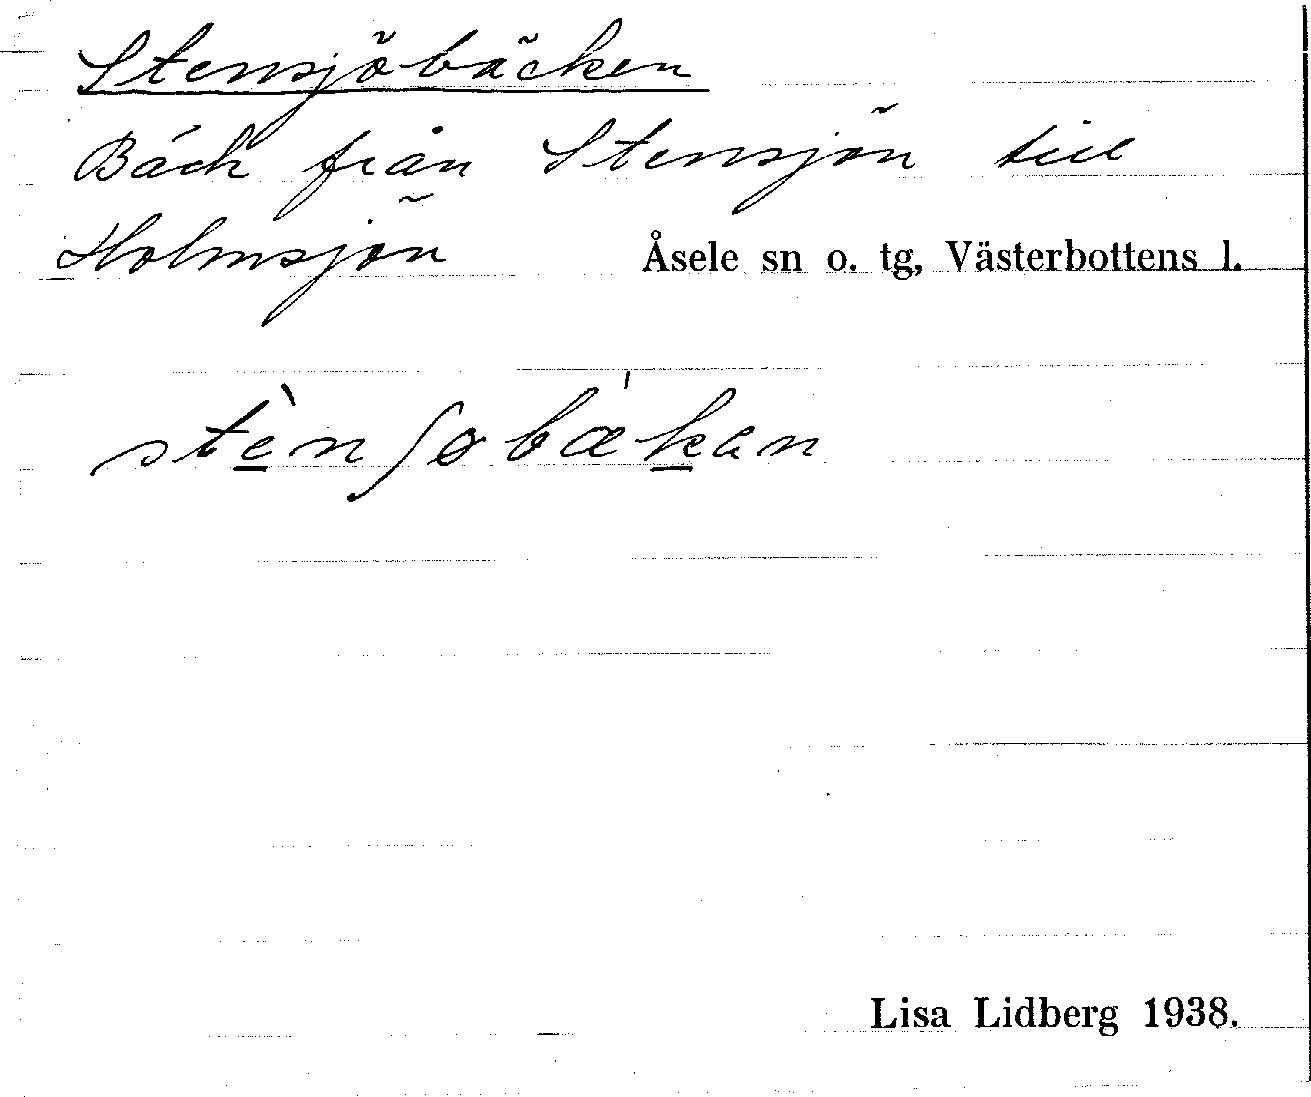 Stensjöbäcken
Bäck från Stensjön till
Holmsjön Åsele sn o. tg, Västerbottens l.
stè̱nʃøbæ'ḵan
Lisa Lidberg 1938.